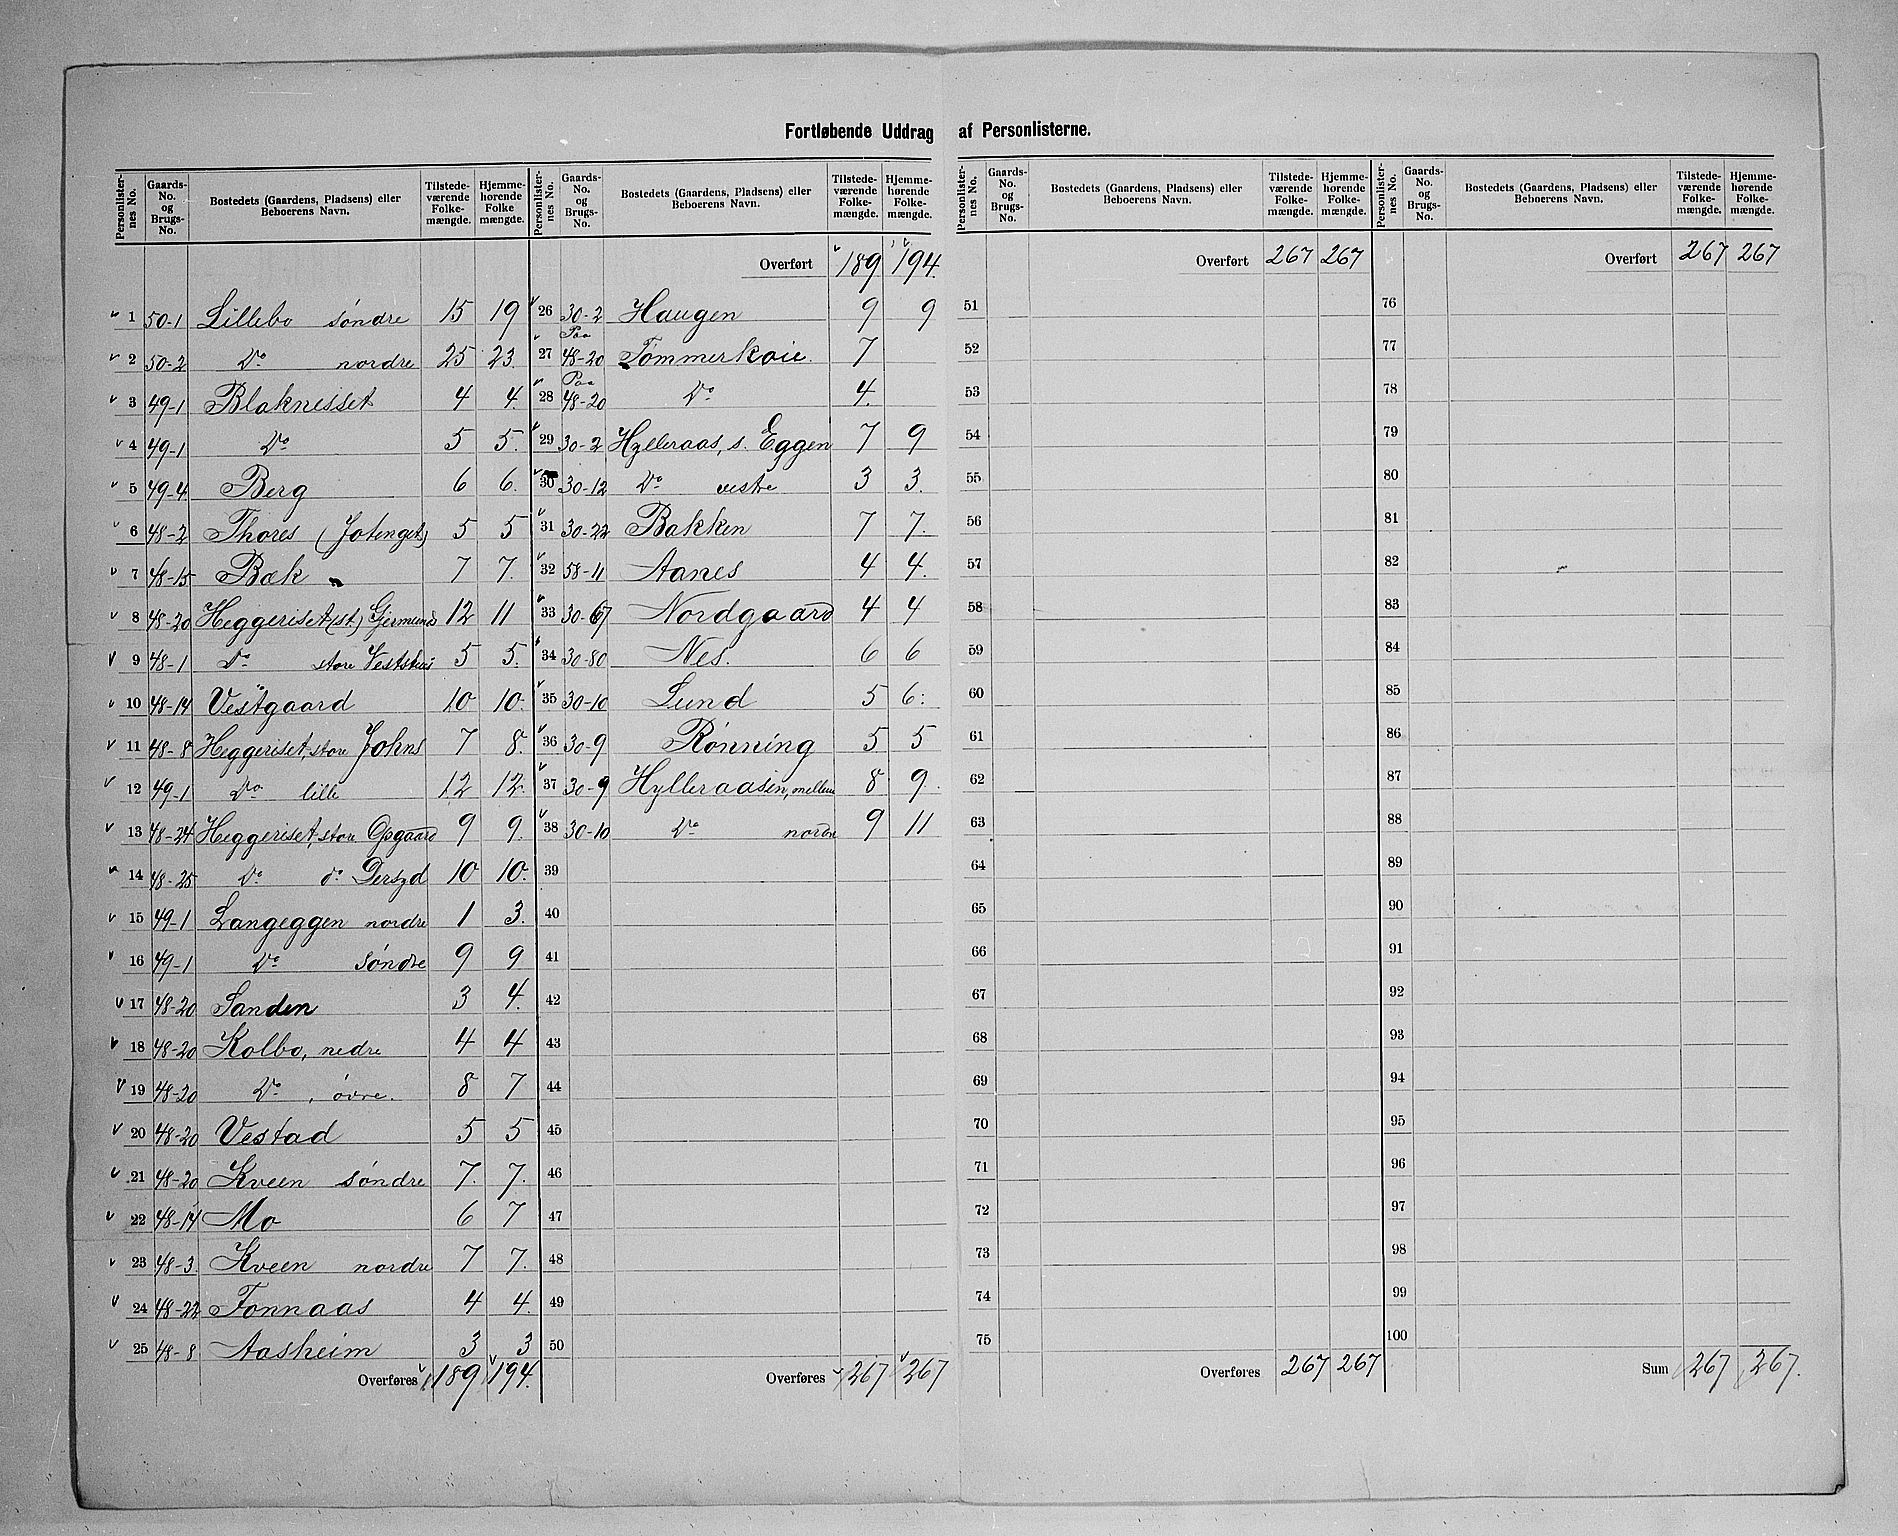 Fortløbende Uddrag af Personlisterne.
Personlister-nes No. Gaards-No. og Brugs-No. Bostedets (Gaardens, Pladsens) eller Beboerens Navn. Tilstede-værende Folke-mængde. Hjemme-hørende Folke mængde.
1 50-1 Lillebo søndre 15 19
2 50-2 Do nordre 25 23.
3 49-1 Blaknesset 4 4.
4 49-1 Do 5 5.
5 49-4 Berg 6 6.
6 48-2 Thores (Jotenget) 5 5
7 48-15 Bæk 7 7.
8 48-20 Heggeriset (st.) Gjermunds 12 11
9 48-1 Do store Vestshus 5 5.
10 48-14 Vestgaard 10 10.
11 48-8 Heggeriset, store Johns 7 8.
12 49-1 Do lille 12 12.
13 48-24 Heggeriset, store Opgaard 9 9.
14 48-25 Do do 10 10.
15 49-1 Langeggen nordre 1 3.
16 49-1 Do søndre 9 9
17 48-20 Sanden 3 4.
18 48-20 Kolbo, nedre 4 4
19 48-20 Do , øvre. 8 7
20 48-20 Vestad 5 5
21 48-20 Kveen søndre 7. 7.
22 48-14 Mo 6 7
23 48-3 Kveen nordre 7 7.
24 48-22 Fonnaas 4 4.
25 48-8 Aasheim 3 3
Overføres 189 194.
Personlister-nes No. Gaards-No. og Brugs-No. Bostedets (Gaardens, Pladsens) eller Beboerens Navn. Tilstede-værende Folke-mængde. Hjemme-hørende Folke-mængde.
Overført 189 194.
26 30-2 Haugen 9 9
27 Paa 48-20 Tømmerkoie. 7
28 Paa 48-20 Do 4.
29 30-2 Hylleraas, s. Eggen 7 9
30 30-12 Do vestre 3 3.
31 30-22 Bakken 7 7.
32 58-11 Aanes 4 4.
33 30-67 Nordgaard 4 4
34 30-80 Nes. 6 6
35 30-10 Lund 5 6.
36 30-9 Rønning 5 5
37 30-9 Hylleraasen, mellem 8 9.
38 30-10 Do nordre 9 11
39
40
41
42
43
44
45
46
47
48
49
50
Overføres 267 267
Personlister-nes No. Gaards-No. og Brugs-No. Bostedets (Gaardens, Pladsens) eller Beboerens Navn. Tilstede-værende Folke-mængde. Hjemme-hørende Folke-mængde.
Overført 267 267
51
52
53
54
55
56
57
58
59
60
61
62
63
64
65
66
67
68
69
70
71
72
73
74
75
Overføres 267 267
Personlister-nes No. Gaards-No. og Brugs-No. Bostedets (Gaardens, Pladsens) eller Beboerens Navn. Tilstede-værende Folke-mængde. Hjemme-hørende Folke-mængde.
Overført 267 267
76
77
78
79
80
81
82
83
84
85
86
87
88
89
90
91
92
93
94
95
96
97
98
99
100
Sum 267 267.